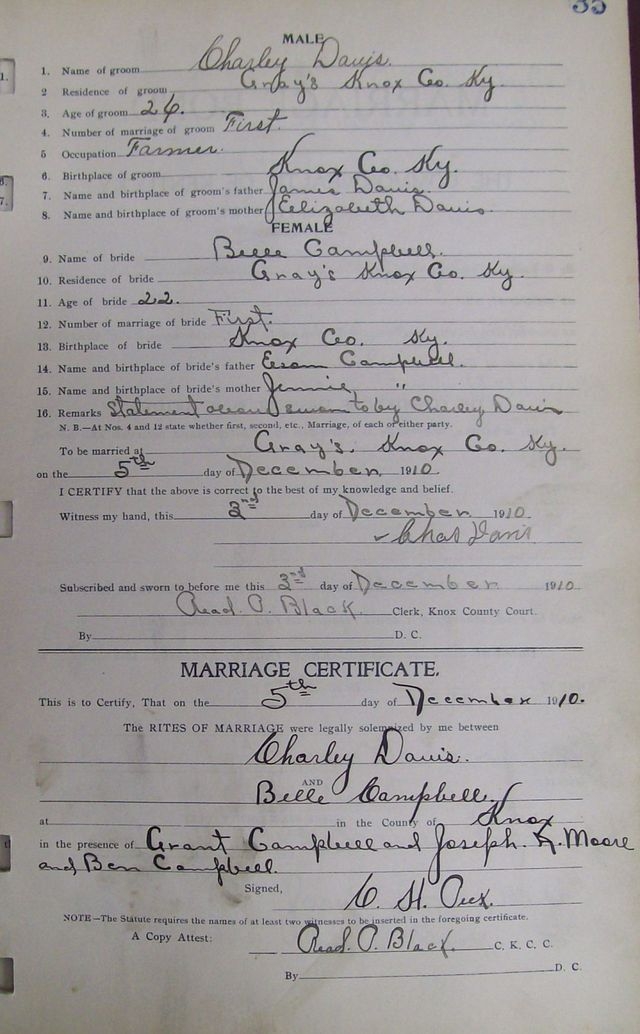 35
MALE
1. Name of groom Charley Davis.
2 Residence of groom Gray's Knox Co. Ky.
3. Age of groom 26.
4. Number of marriage of groom First.
5 Occupation Farmer.
6. Birthplace of groom Knox Co. Ky.
7. Name and birthplace of groom's father James Davis.
8. Name and birthplace of groom's mother Elizabeth Davis.
FEMALE
9. Name of bride Belle Campbell.
10. Residence of bride Gray's Knox Co. Ky.
11. Age of bride 22.
12. Number of marriage of bride First.
13. Birthplace of bride Knox Co. Ky.
14. Name and birthplace of bride's father Campbell.
15. Name and birthplace of bride's mother Jennie "
16. Remarks Statement sworn to by Charley Davis
N. B.—At Nos. 4 and 12 state whether first, second, etc., Marriage, of each of either party.
To be married at Gray's. Knox Co. Ky.
on the 5th day of December, 1910
I CERTIFY that the above is correct to the best of my knowledge and belief.
Witness my hand, this 3nd day of December 1910.
Chas Davis
Subscribed and sworn to before me this 3nd day of December 1910
Read. P. Black. Clerk, Knox County Court.
By D. C.
MARRIAGE CERTIFICATE.
This is to Certify, That on the 5th day of December 1910.
The RITES OF MARRIAGE were legally solemnized by me between
Charley Davis.
AND
Belle Campbell,
at in the County of Knox
in the presence of Grant Campbell and Joseph. Moore
and Ben Campbell.
Signed,
NOTE—The Statute requires the names of at least two witnesses to be inserted in the foregoing certificate.
A Copy Attest: Read. P. Black. C. K. C. C.
By D. C.